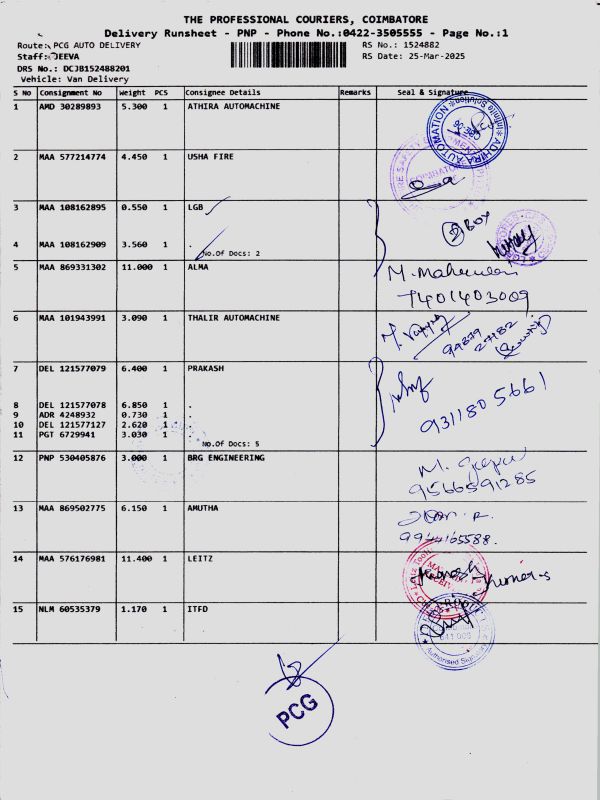 THE PROFESSIONAL COURIERS, COIMBATORE
Delivery Runsheet - PNP - Phone No.:0422-3505555 - Page No.:1
Route: PCG AUTO DELIVERY RS No.: 1524882
Staff: JEEVA RS Date: 25-Mar-2025
DRS No.: DCJB152488201
Vehicle: Van Delivery
S No Consignment No Weight PCS Consignee Details Remarks Seal & Signature
1 AMD 30289893 5.300 1 ATHIRA AUTOMACHINE
ADHIRA AUTOMATION
2 MAA 577214774 4.450 1 USHA FIRE
3 MAA 108162895 0.550 1 LGB
BOX
4 MAA 108162909 3.560 1 .
No.Of Docs: 2
5 MAA 869331302 11.000 1 ALMA
7401403009
6 MAA 101943991 3.090 1 THALIR AUTOMACHINE
99879
27182
7 DEL 121577079 6.400 1 PRAKASH
9311805661
8 DEL 121577078 6.850 1 .
9 ADR 4248932 0.730 1 .
10 DEL 121577127 2.620 1 .
11 PGT 6729941 3.030 1 .
No.Of Docs: 5
12 PNP 530405876 3.000 1 BRG ENGINEERING
9566591285
13 MAA 869502775 6.150 1 AMUTHA
9944165588
14 MAA 576176981 11.400 1 LEITZ
15 NLM 60535379 1.170 1 ITFD
Authorised
PCG